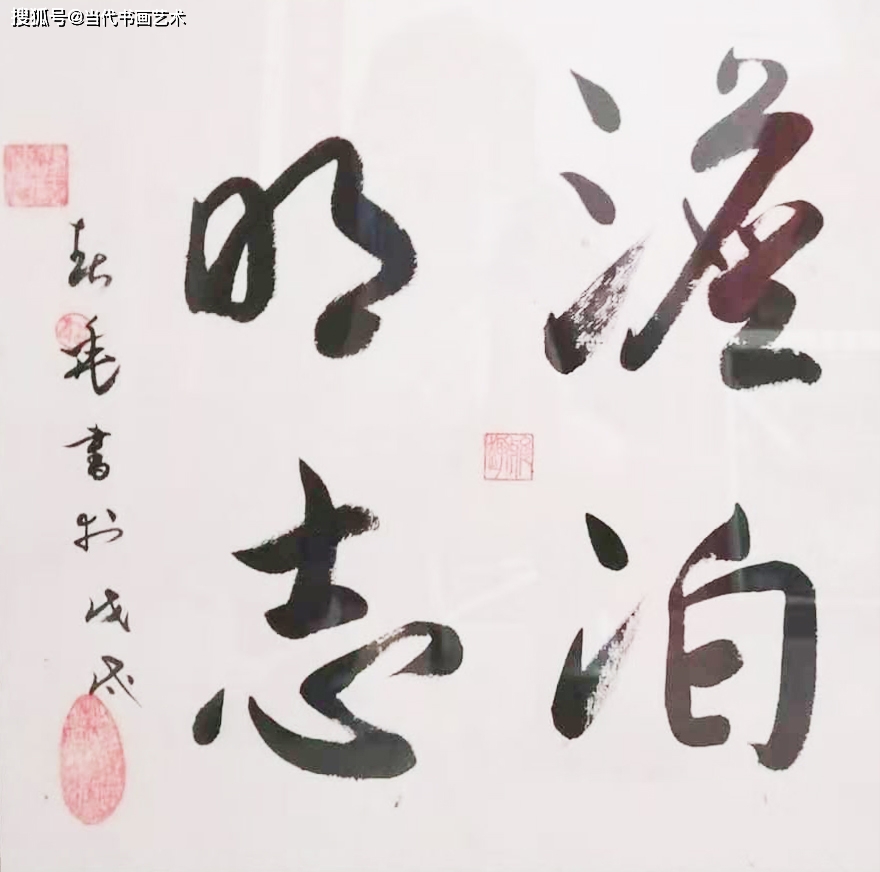 搜狐号@当代书画艺术
澹泊
明志
书于戊戌